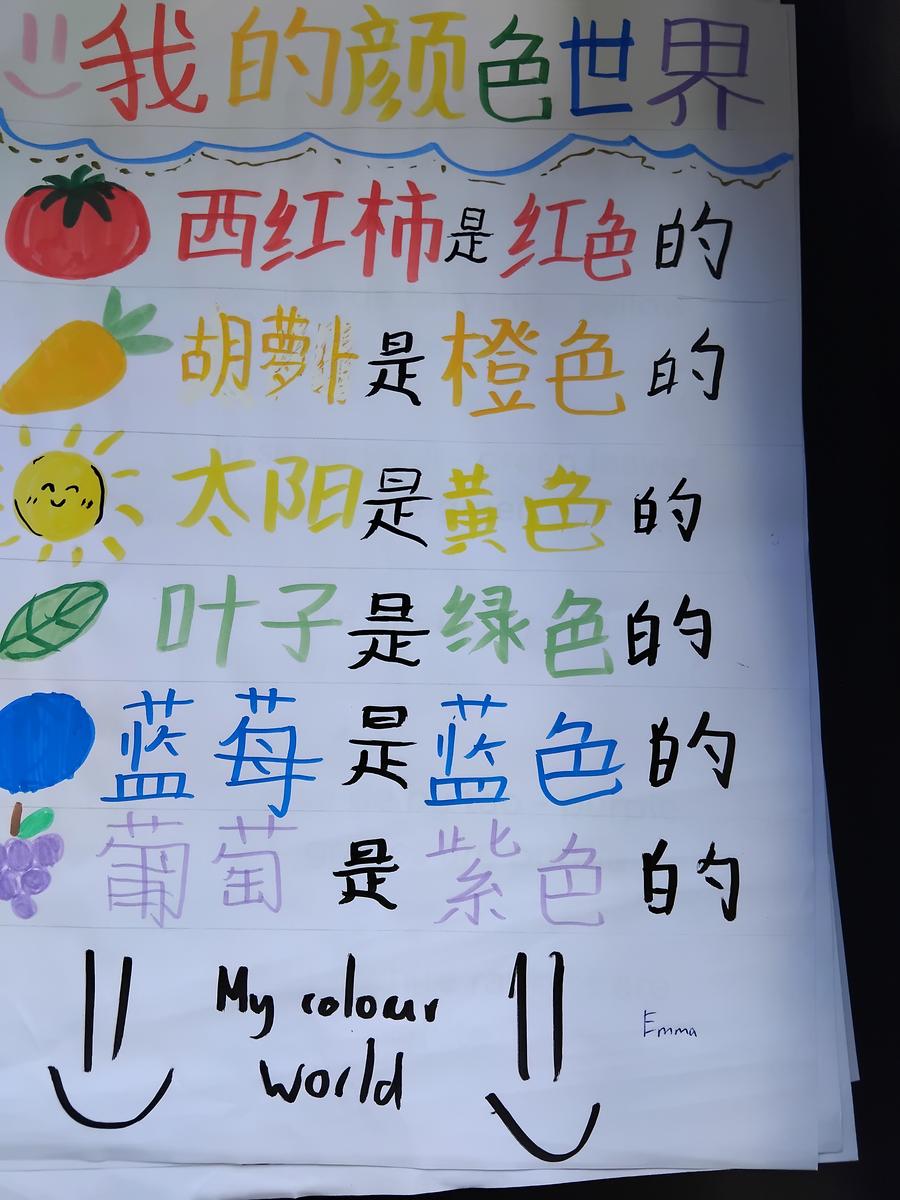 我的颜色世界
西红柿是红色的
胡萝卜是橙色的
太阳是黄色的
叶子是绿色的
蓝莓是蓝色的
葡萄是紫色的
My colour
world
Emma